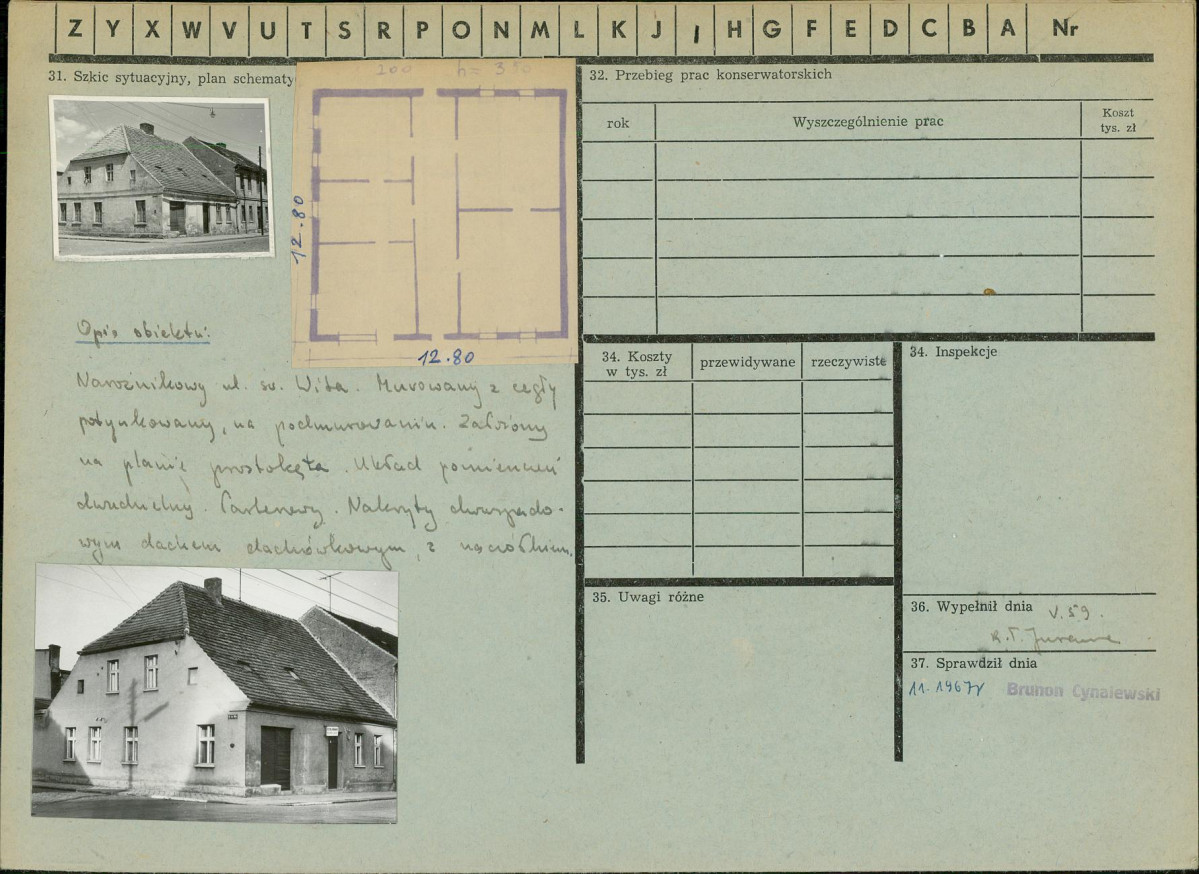 Z Y X W V U T S R P O N M L K J I H G F E D C B A Nr
31. Szkic sytuacyjny, plan schematy
200 h = 350
12.80
12.80
Opis obiektu:
Narożnikowy ul. św. Wita. Murowany z cegły
potynkowany, na podmurowaniu. Założony
na planie prostokąta. Układ pomieszczeń
dwudzielny. Parterowy. Nakryty dwuspado-
wym dachem dachówkowym, z naczółkiem.
32. Przebieg prac konserwatorskich
rok
Wyszczególnienie prac
Koszt
tys. zł
34. Koszty
w tys. zł
przewidywane
rzeczywiste
34. Inspekcje
35. Uwagi różne
36. Wypełnił dnia V.59.
37. Sprawdził dnia
11.1967r Brunon Cynalewski